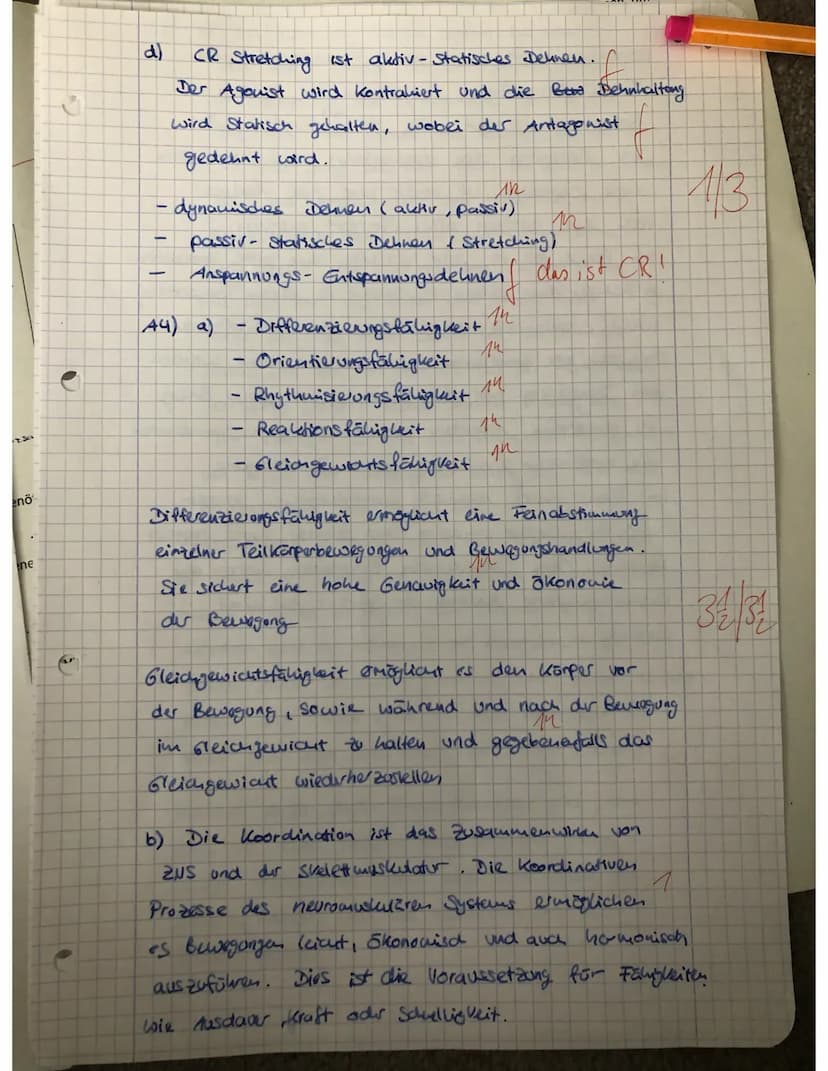 d) CR Stretching ist aktiv-statisches Dehnen. f
Der Agonist wird kontrahiert und die Dehnhaltung
wird statisch gehalten, wobei der Antagonist f
gedehnt wird.
1/3
- dynamisches Dehnen (aktiv, passiv)
- passiv-statisches Dehnen (Stretching)
- Anspannungs-Entspannungsdehnen f das ist CR!
A4) a) - Differenzierungsfähigkeit
- Orientierungsfähigkeit
- Rhythmisierungsfähigkeit
- Reaktionsfähigkeit
- Gleichgewichtsfähigkeit
Differenzierungsfähigkeit ermöglicht eine Feinabstimmung
einzelner Teilkörperbewegungen und Bewegungshandlungen.
Sie sichert eine hohe Genauigkeit und Ökonomie
der Bewegung
3½/3½
Gleichgewichtsfähigkeit ermöglicht es den Körper vor
der Bewegung, sowie während und nach der Bewegung
im Gleichgewicht zu halten und gegebenenfalls das
Gleichgewicht wiederherzustellen
b) Die Koordination ist das Zusammenwirken von
ZNS und der Skelettmuskulatur. Die Koordinativen
Prozesse des neuromuskulären Systems ermöglichen 1
es Bewegungen leicht, ökonomisch und auch harmonisch
auszuführen. Dies ist die Voraussetzung für Fähigkeiten
wie Ausdauer, Kraft oder Schnelligkeit.